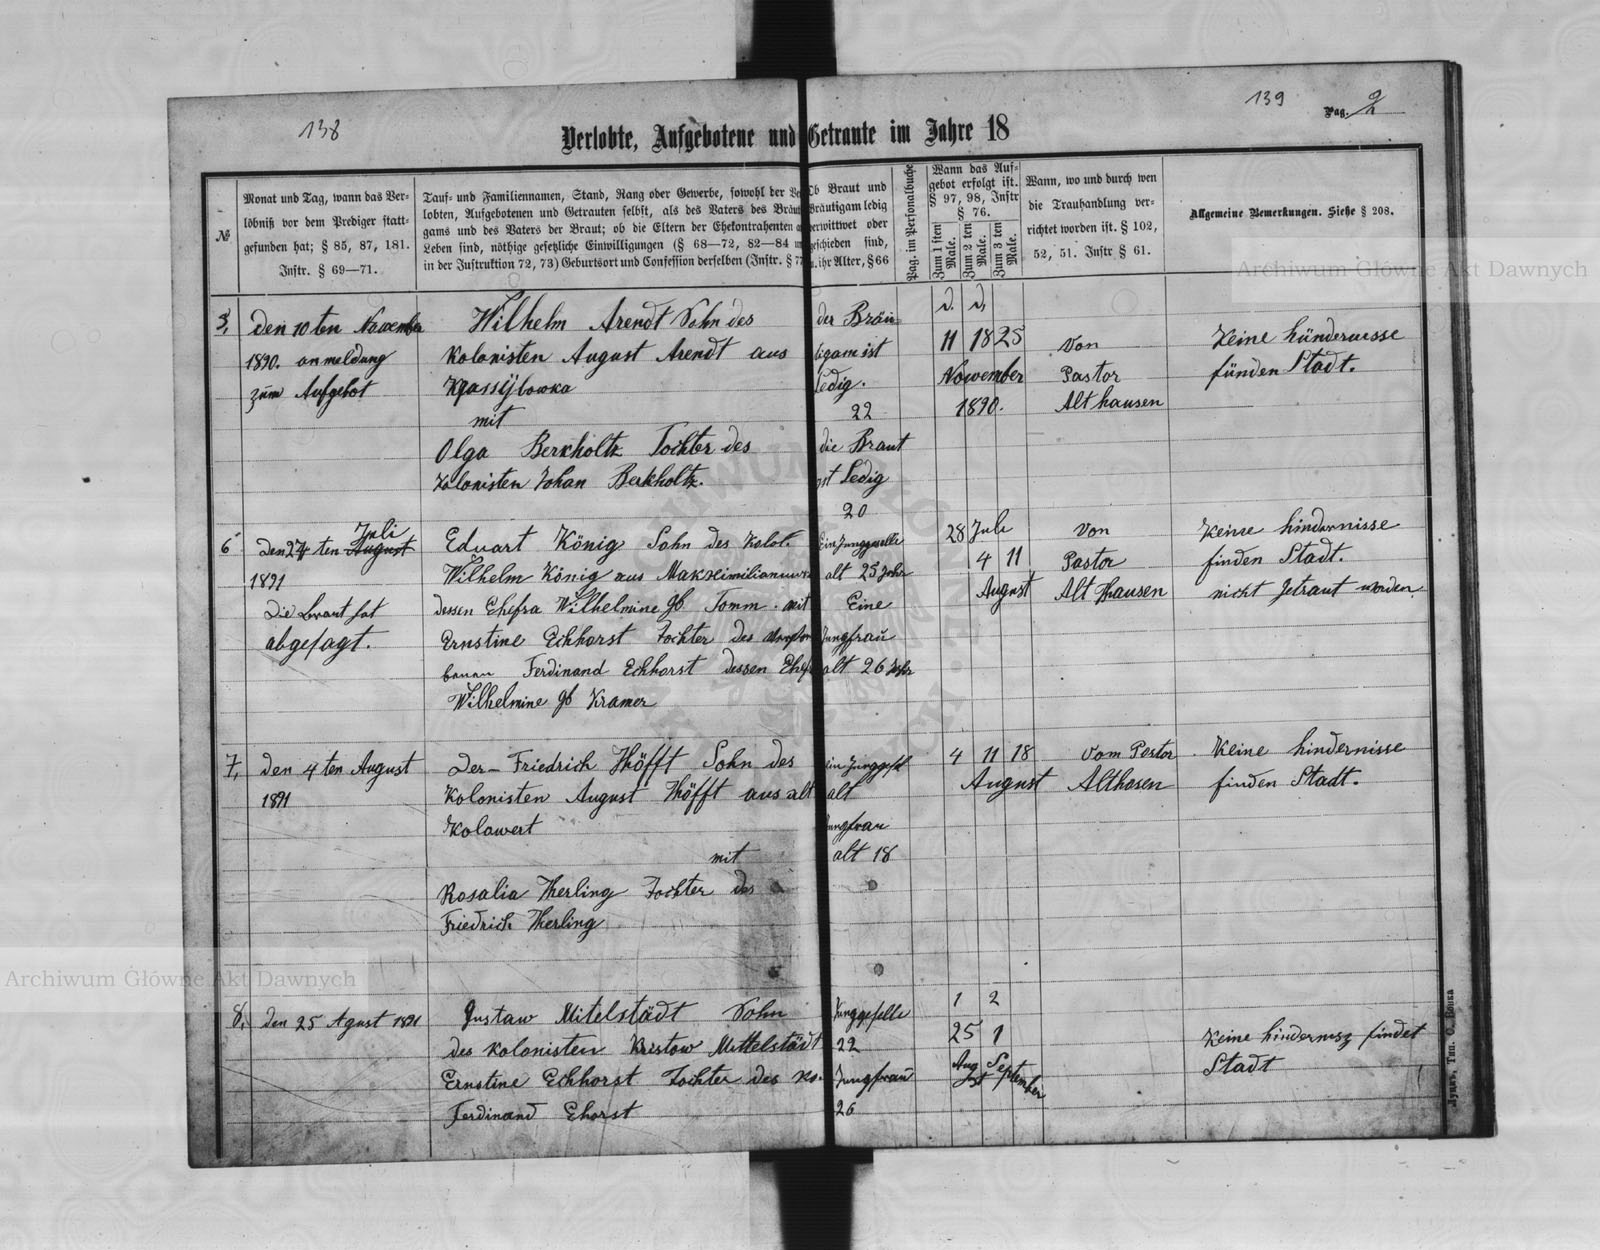 138
139
Pag. 2
Verlobte, Aufgebotene und Getraute im Jahre 18
№
Monat und Tag, wann das Ver-
löbniß vor dem Prediger statt-
gefunden hat; § 85, 87, 181.
Instr. § 69—71.
Tauf- und Familiennamen, Stand, Rang oder Gewerbe, sowohl der
lobten, Aufgebotenen und Getrauten selbst, als des Vaters des Bräut
gams und des Vaters der Braut; ob die Eltern der Ehekontrahenten
Leben sind, nöthige gesetzliche Einwilligungen (§ 68—72, 82—84
in der Instruktion 72, 73) Geburtsort und Confession derselben (Instr. §
Ob Braut und
Bräutigam ledig
verwittwet oder
geschieden sind,
u. ihr Alter, § 66
Pag. im Personalbuche
Wann das Auf-
gebot erfolgt ist.
§ 97, 98, Instr
§ 76.
Zum 1 sten Male.
Zum 2 ten Male.
Zum 3 ten Male.
Wann, wo und durch wen
die Trauhandlung ver-
richtet worden ist. § 102,
52, 51. Instr § 61.
Allgemeine Bemerkungen. Siehe § 208.
5,
den 10 ten November
1890. anmeldung
zum Aufgebot
Wilhelm Arendt Sohn des
Kolonisten August Arendt aus
mit
Olga Berkholtz Tochter des
Kolonisten Johan Berkholtz.
der Bräu
tigam ist
ledig.
22
die Braut
ist Ledig
20
d. d,
11 18 25
Nowember
1890.
von
Pastor
Alt hausen
Keine hündernisse
fünden Stadt.
6
Juli
den 24 ten August
1891
Die braut hat
abgesagt.
Eduart König Sohn des Kolot.
Wilhelm König aus
dessen Ehefra Wilhelmine gb Tomm. mit
Ernstine Eckhorst Tochter des
Ferdinand Eckhorst dessen Ehef
Wilhelmine gb Kramer
Ein Junggeselle
alt 25 Jahr
Eine
Jungfrau
alt 26 Jahr
28 Juli
4 11
August
von
Pastor
Alt Hausen
Keine hindernisse
finden Stadt.
nicht Getraut worden.
7,
den 4 ten August
1891
Der Friedrich Höfft Sohn des
Kolonisten August Höfft aus alt
Kolowert
mit
Rosalia Herling Tochter des
Friedrich Herling
ein Junggesel
alt
Jungfrau
alt 18
4 11 18
August
Vom Pastor
Althosen
Keine hindernisse
finden Stadt.
8,
den 25 Agust 1891
Gustaw Mitelstädt Sohn
des Kolonisten Kristow Mittelstädt
Ernstine Eckhorst Tochter des Ko.
Ferdinand Ehorst
Junggeselle
22
Jungfrau
26
1 2
25 1
Aug
ust
September
Keine hindernisz findet
Stadt
Archiwum Główne Akt Dawnych
Archiwum Główne Akt Dawnych